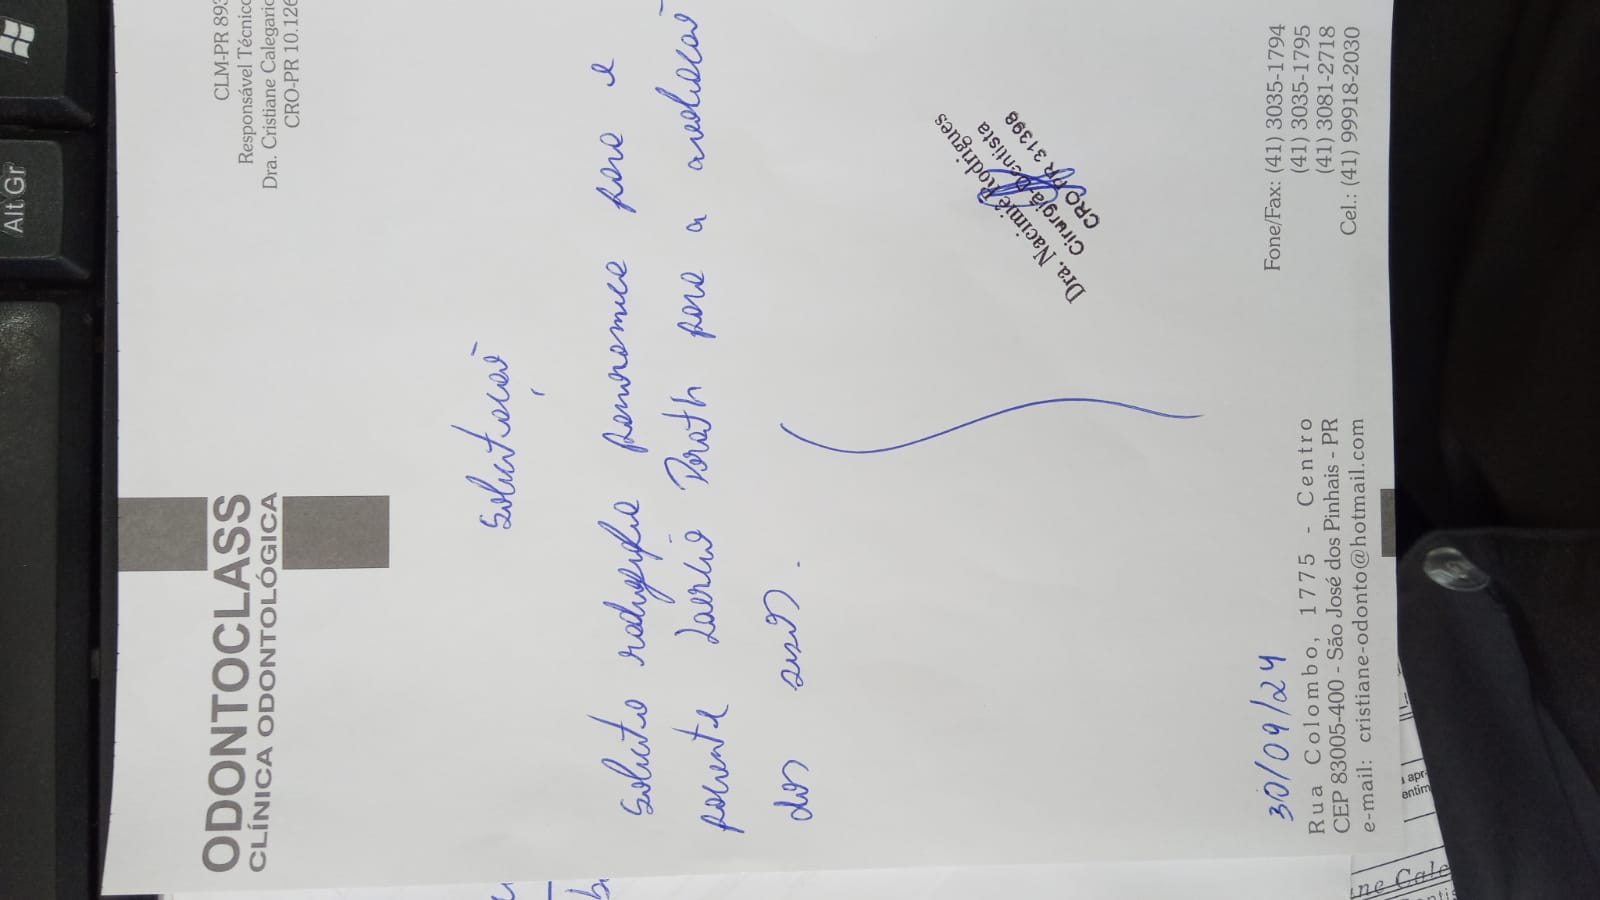 ODONTOCLASS
CLÍNICA ODONTOLÓGICA
CLM-PR 893
Responsável Técnico
Dra. Cristiane Calegario
CRO-PR 10.126
Solicitacaõ
Solicito radiografia panoramica para o
paciente Laercio para a avaliacaõ
dos sisos.
Dra. Nacimie Rodrigues
Cirurgiã-Dentista
CRO PR 31398
30/09/24
Rua Colombo, 1775 - Centro
CEP 83005-400 - São José dos Pinhais - PR
e-mail: cristiane-odonto@hotmail.com
Fone/Fax: (41) 3035-1794
(41) 3035-1795
(41) 3081-2718
Cel.: (41) 99918-2030
Alt Gr